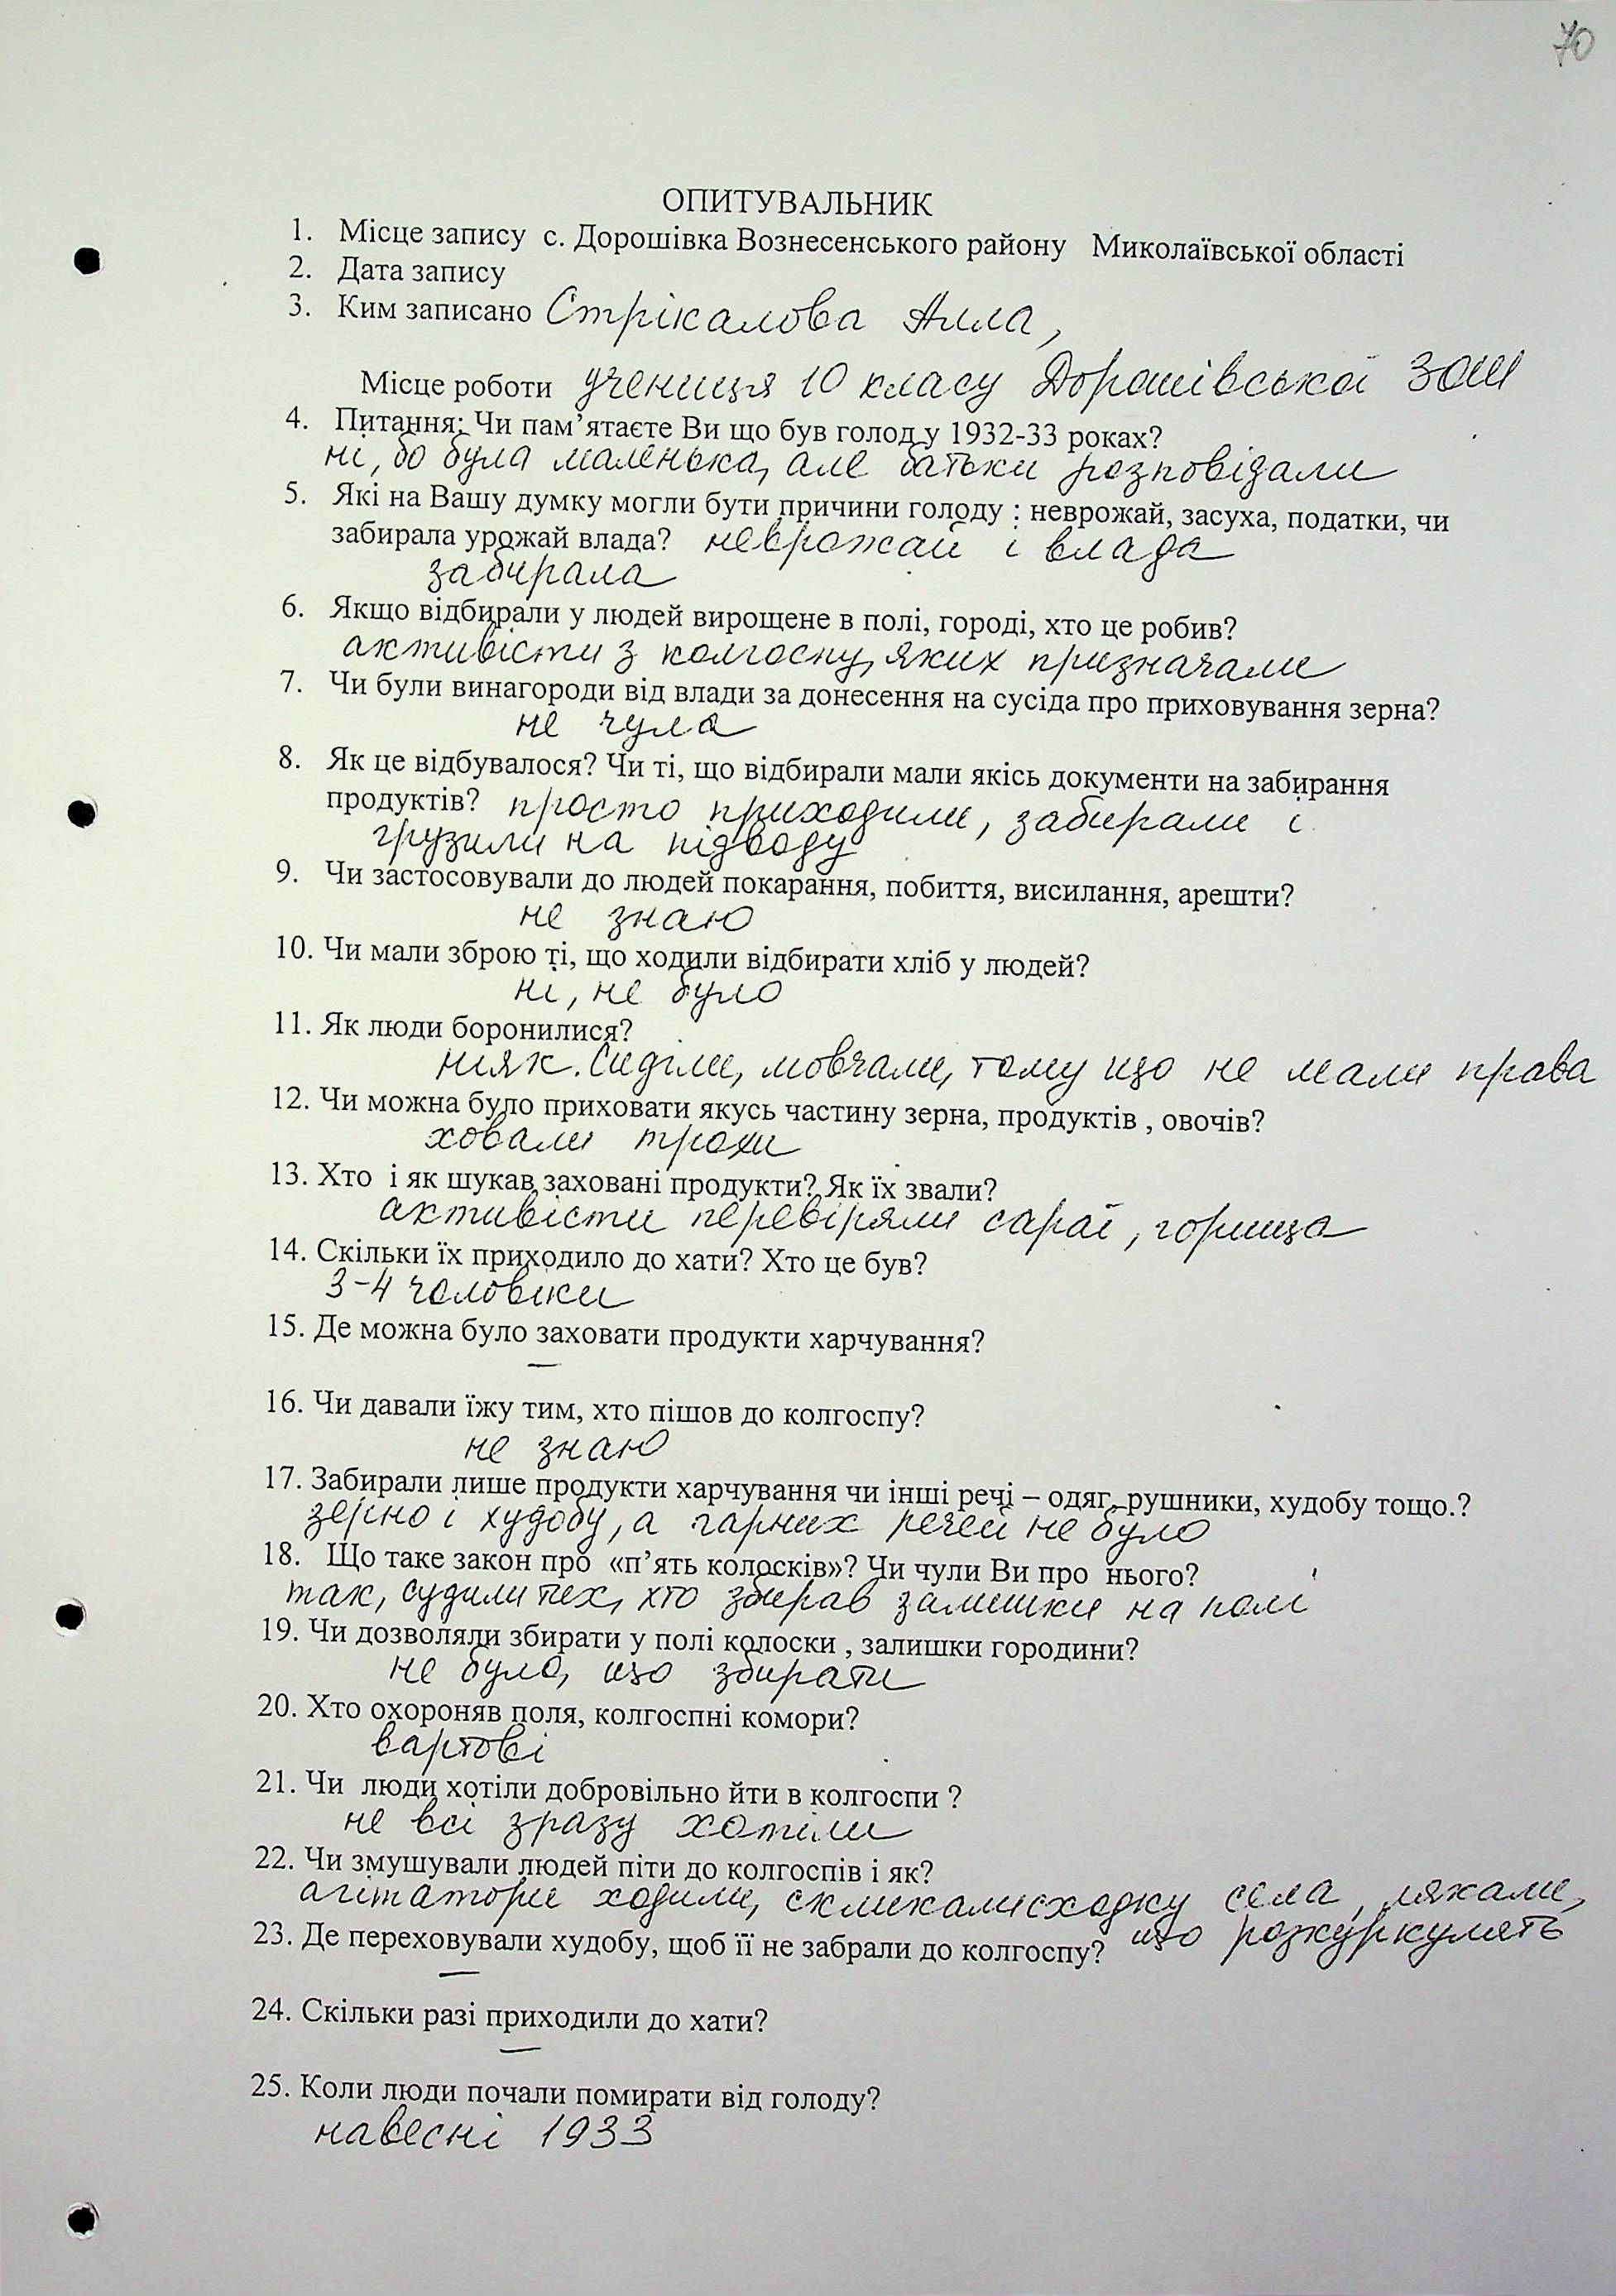 70
ОПИТУВАЛЬНИК
1. Місце запису с. Дорошівка Вознесенського району Миколаївської області
2. Дата запису
3. Ким записано Стрікалова Алла,
Місце роботи учениця 10 класу Дорошівської ЗОШ
4. Питання: Чи пам’ятаєте Ви що був голод у 1932-33 роках?
ні, бо була маленька, але батьки розповідали
5. Які на Вашу думку могли бути причини голоду : неврожай, засуха, податки, чи
забирала урожай влада? неврожай і влада
забирала
6. Якщо відбирали у людей вирощене в полі, городі, хто це робив?
активісти з колгоспу, яких призначали
7. Чи були винагороди від влади за донесення на сусіда про приховування зерна?
не чула
8. Як це відбувалося? Чи ті, що відбирали мали якісь документи на забирання
продуктів? просто приходили, забирали і
грузили на підводу
9. Чи застосовували до людей покарання, побиття, висилання, арешти?
не знаю
10. Чи мали зброю ті, що ходили відбирати хліб у людей?
ні, не було
11. Як люди боронилися?
ніяк. Сиділи, мовчали, тому що не мали права
12. Чи можна було приховати якусь частину зерна, продуктів , овочів?
ховали трохи
13. Хто і як шукав заховані продукти? Як їх звали?
активісти перевіряли сараї, горища
14. Скільки їх приходило до хати? Хто це був?
3-4 чоловіки
15. Де можна було заховати продукти харчування?
—
16. Чи давали їжу тим, хто пішов до колгоспу?
не знаю
17. Забирали лише продукти харчування чи інші речі – одяг, рушники, худобу тощо.?
зерно і худобу, а гарних речей не було
18. Що таке закон про «п’ять колосків»? Чи чули Ви про нього?
так, судили тех, хто збирав залишки на полі
19. Чи дозволяли збирати у полі колоски , залишки городини?
не було, що збирати
20. Хто охороняв поля, колгоспні комори?
вартові
21. Чи люди хотіли добровільно йти в колгоспи ?
не всі зразу хотіли
22. Чи змушували людей піти до колгоспів і як?
агітатори ходили, скликали сходку села, лякали,
що розкуркулять
23. Де переховували худобу, щоб її не забрали до колгоспу?
—
24. Скільки разі приходили до хати?
—
25. Коли люди почали помирати від голоду?
навесні 1933